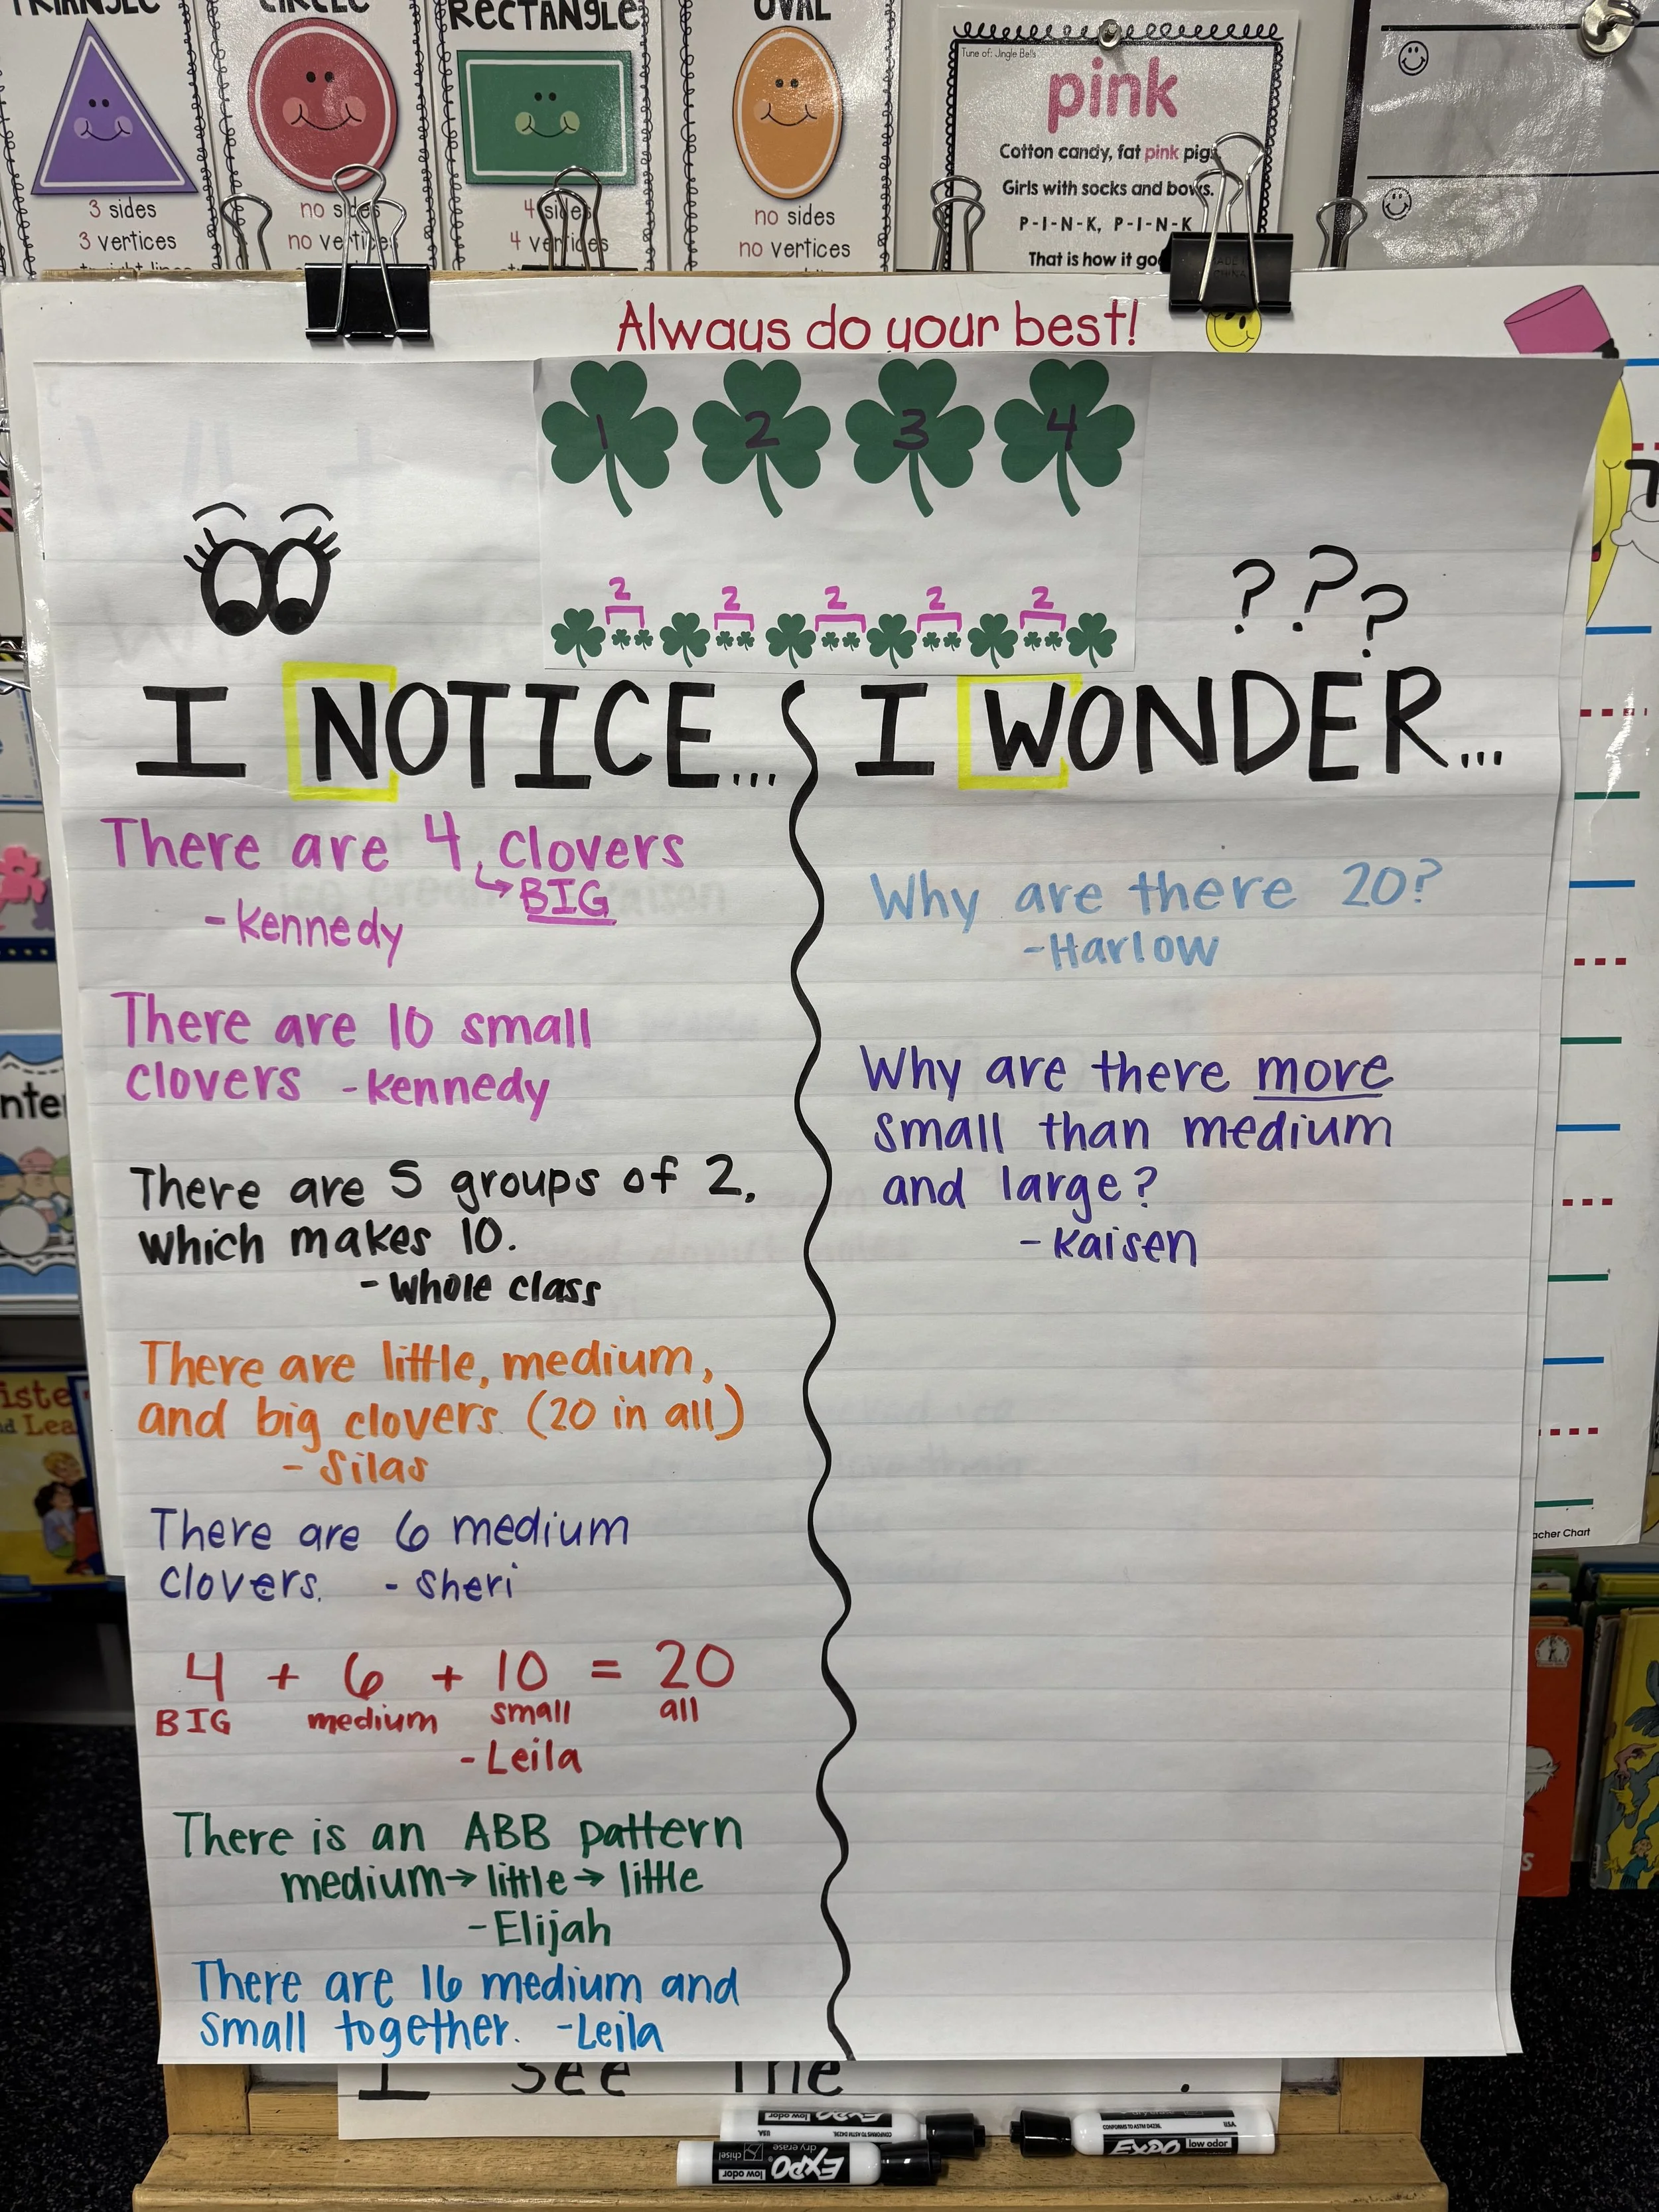 TRIANGLE
CIRCLE
RECTANGLE
OVAL
3 sides
3 vertices
no sides
no vertices
4 sides
4 vertices
no sides
no vertices
Tune of: Jingle Bells
pink
Cotton candy, fat pink pigs
Girls with socks and bows.
P-I-N-K, P-I-N-K
That is how it goe
Always do your best!
1 2 3 4
2 2 2 2 2
? ? ?
I NOTICE...
There are 4 clovers
BIG
-Kennedy
There are 10 small
clovers -Kennedy
There are 5 groups of 2,
which makes 10.
-Whole class
There are little, medium,
and big clovers. (20 in all)
- Silas
There are 6 medium
clovers. - Sheri
4 + 6 + 10 = 20
BIG medium small all
-Leila
There is an ABB pattern
medium→little→little
-Elijah
There are 16 medium and
small together. -Leila
I WONDER...
Why are there 20?
-Harlow
Why are there more
small than medium
and large?
-Kaisen
acher Chart
I see the .
EXPO
low odor
dry erase
chisel
EXPO
low odor
CONFORMS TO ASTM D4236
USA
EXPO
low odor
CONFORMS TO ASTM D4236